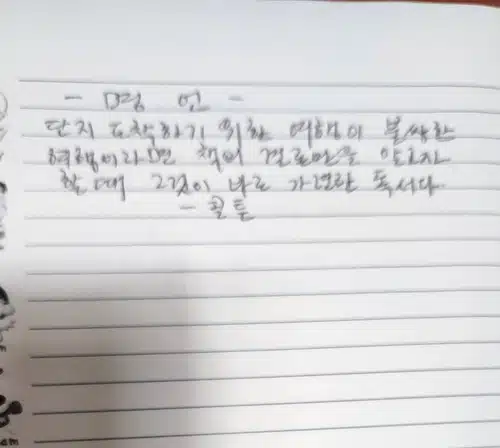 - 명 언 -
단지 도착하기 위한 여행이 불쌍한
여행이라면 책의 결론만을 알고자
할 때 그것이 바로 가련한 독서다.
- 콜튼
am